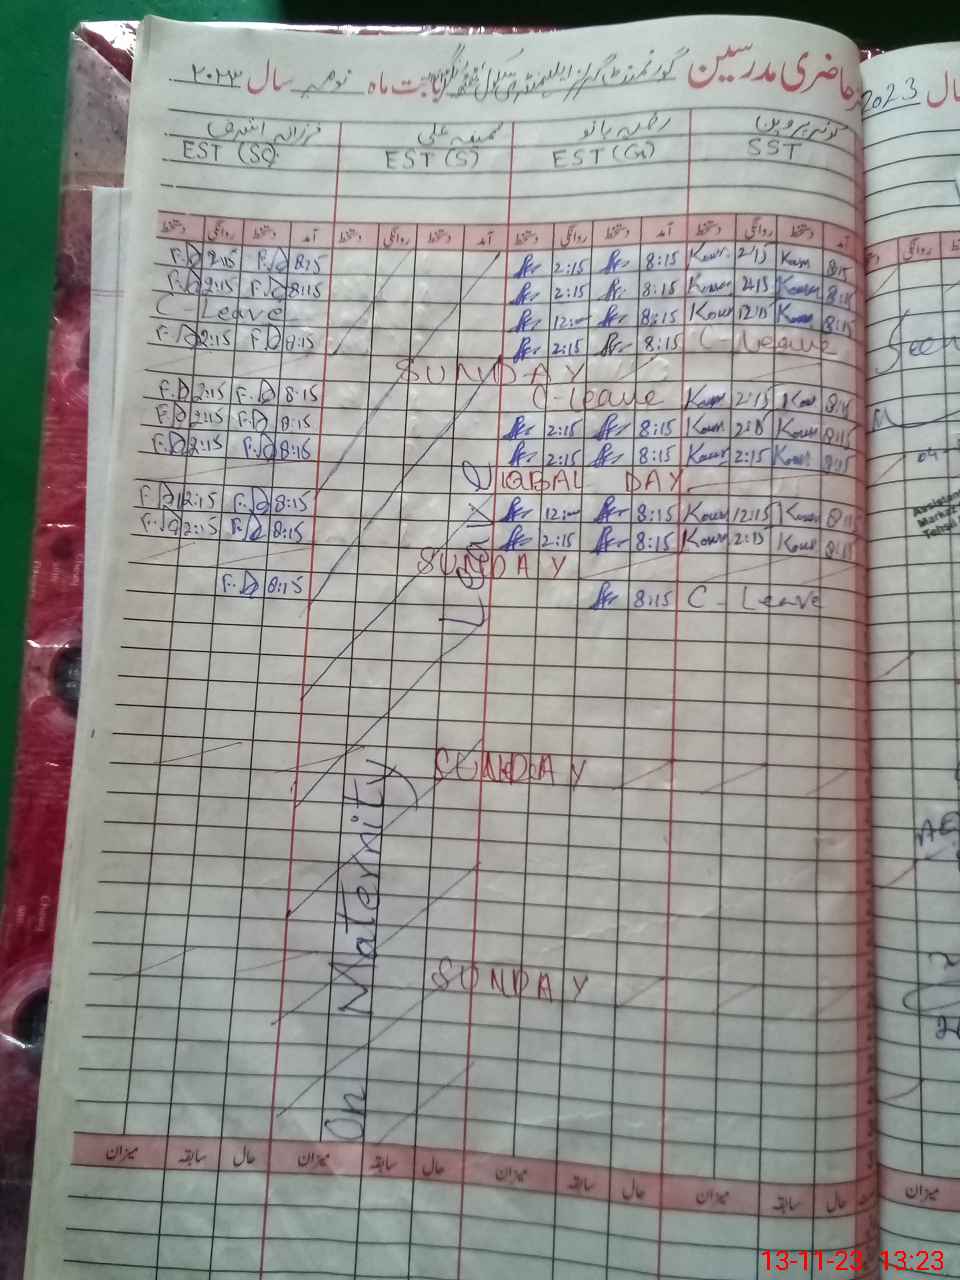 حاضری مدرسین گورنمنٹ گرلز ایلیمنٹری سکول بابت ماہ نومبر سال ۲۰۲۳
2023 سال
کوثر پروین ثمینہ علی فرزانہ اشرف
SST EST (G) EST (S) EST (SC)
آمد دستخط روانگی دستخط آمد دستخط روانگی دستخط آمد دستخط روانگی دستخط آمد دستخط روانگی دستخط
F.D 2:15 F.D 8:15 2:15 8:15 Kousr 2:15 Kousr 8:15
F.D 2:15 F.D 8:15 2:15 8:15 Kousr 2:15 Kousr 8:15
C - Leave 12:00 8:15 Kousr 12:15 Kousr 8:15
F.D 2:15 F.D 8:15 2:15 8:15 C - Leave
SUNDAY
F.D 2:15 F.D 8:15 C-leave Kousr 2:15 Kousr 8:15
F.D 2:15 F.D 8:15 2:15 8:15 Kousr 2:15 Kousr 8:15
F.D 2:15 F.D 8:15 2:15 8:15 Kousr 2:15 Kousr 8:15
IQBAL DAY
F.D 12:15 F.D 8:15 12:00 8:15 Kousr 12:15 Kousr 8:15
F.D 2:15 F.D 8:15 2:15 8:15 Kousr 2:15 Kousr 8:15
SUNDAY
F.D 8:15 8:15 C - Leave
SUNDAY
SUNDAY
On Maternity Leave
حال سابقہ میزان حال سابقہ میزان حال سابقہ میزان حال سابقہ میزان
میزان
13-11-23 13:23